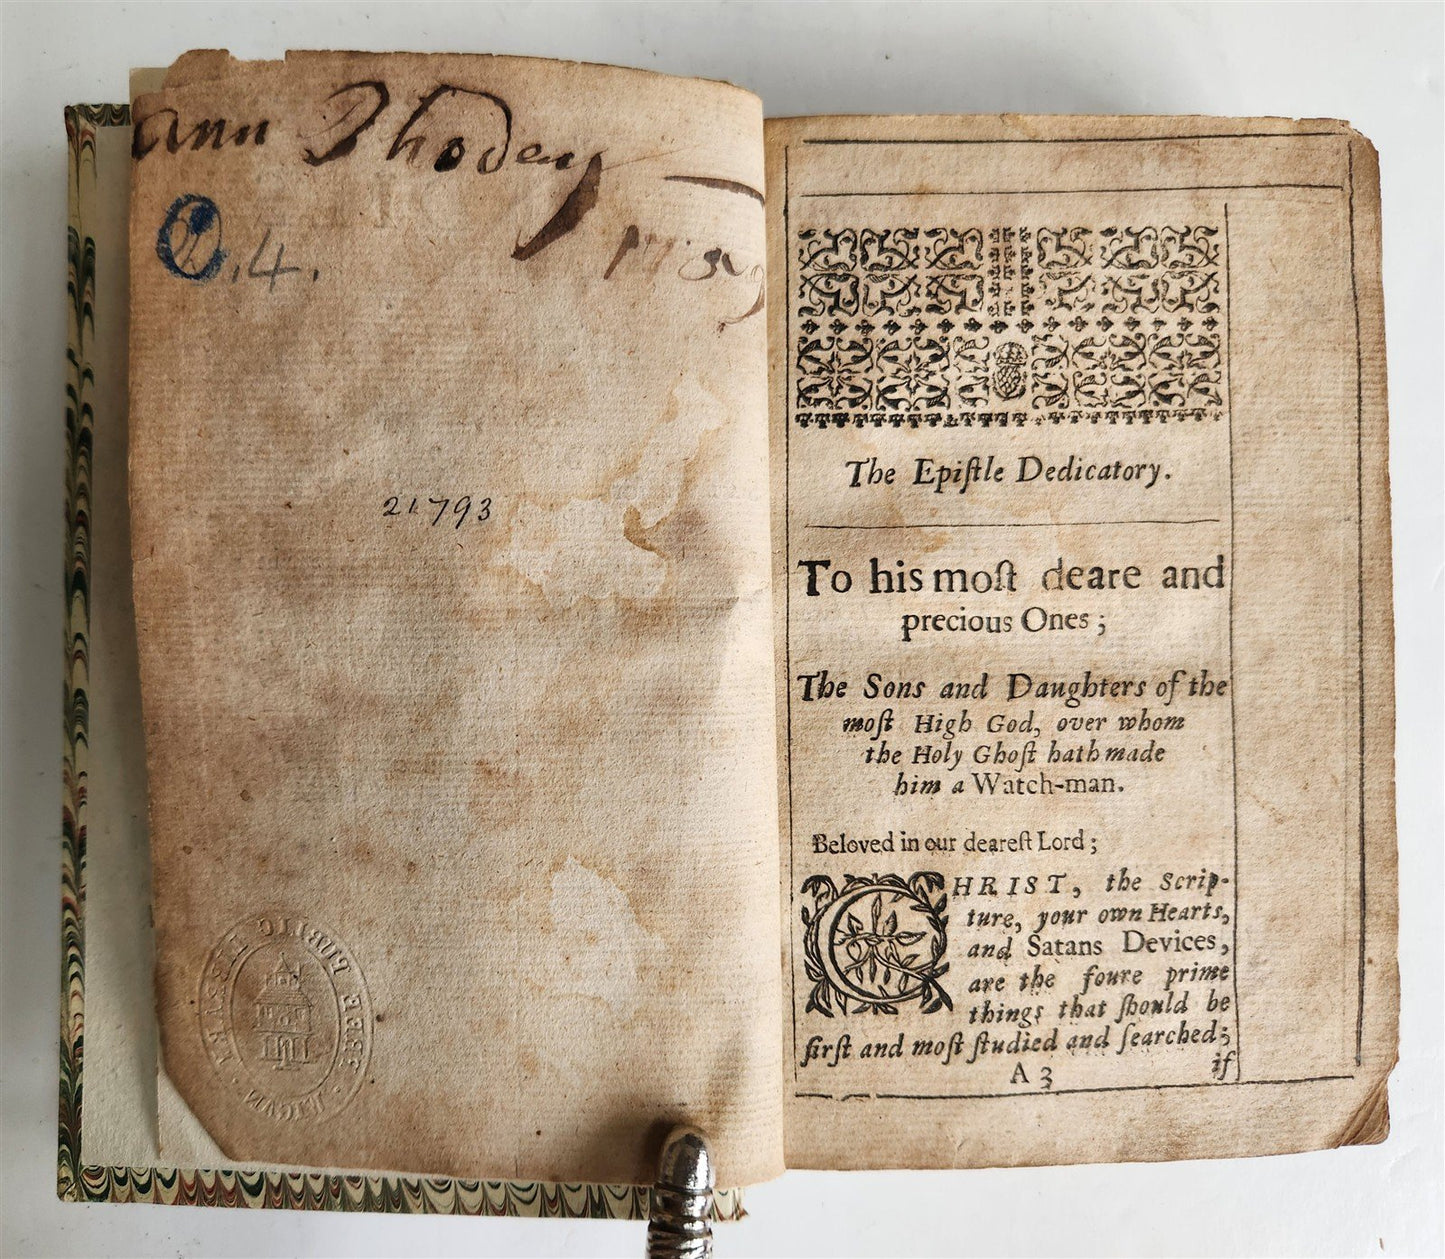 ann Rhodey
2.4.
21793
FREE PUBLIC
The Epiſtle Dedicatory.
To his moſt deare and
precious Ones;
The Sons and Daughters of the
moſt High God, over whom
the Holy Ghoſt hath made
him a Watch-man.
Beloved in our deareſt Lord;
CHRIST, the Scrip-
ture, your own Hearts,
and Satans Devices,
are the foure prime
things that ſhould be
firſt and moſt ſtudied and ſearched;
A 3 if